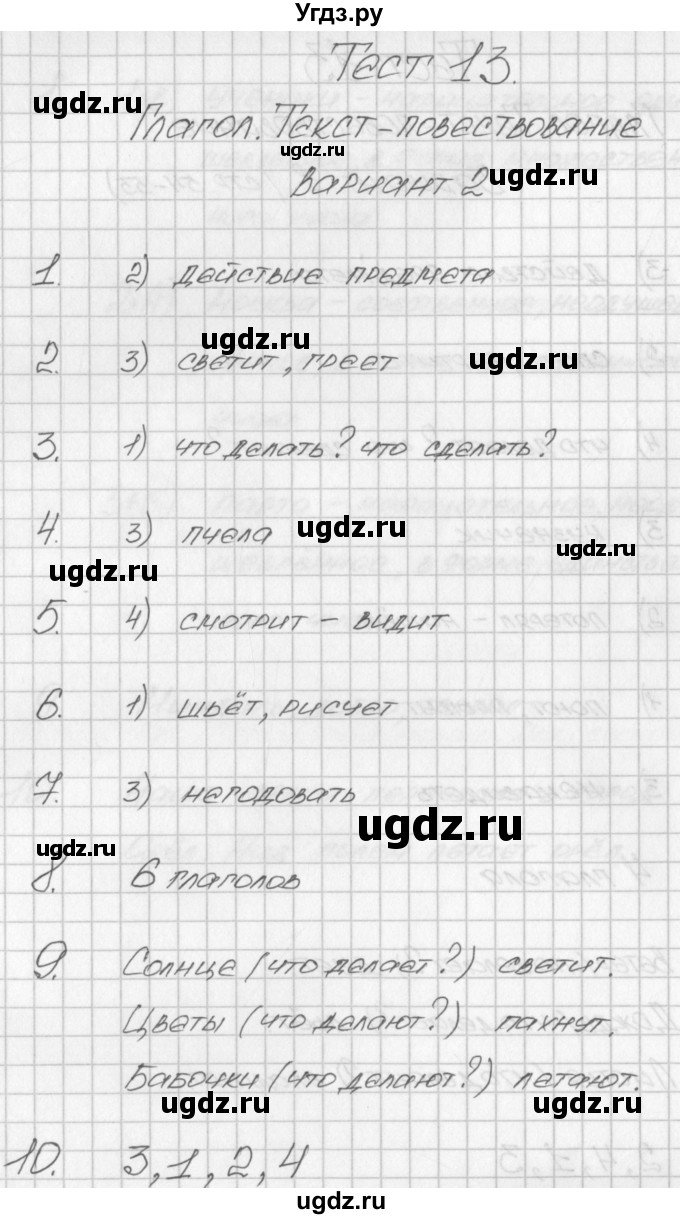 Угдз.ру
Тест 13.
ugdz.ru
Глагол. Текст-повествование
ugdz.ru
Вариант 2
ugdz.ru
1. 2) действие предмета
ugdz.ru
2. 3) светит, греет
ugdz.ru
3. 1) что делать? что сделать?
4. 3) пчела
ugdz.ru
ugdz.ru
ugdz.ru
5. 4) смотрит – видит
6. 1) шьёт, рисует
7. 3) негодовать
ugdz.ru
ugdz.ru
8. 6 глаголов
9. Солнце (что делает?) светит.
Цветы (что делают?) пахнут.
Бабочки (что делают?) летают.
ugdz.ru
ugdz.ru
10. 3, 1, 2, 4
ugdz.ru